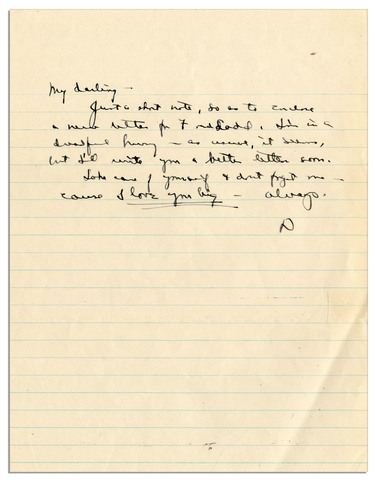 My darling —
Just a short note, so as to enclose
a news letter for I'm in a
dreadful hurry — as usual, it seems,
but I'll write you a better letter soon.
Take care of yourself & don't forget me —
cause I love you big — always.
D